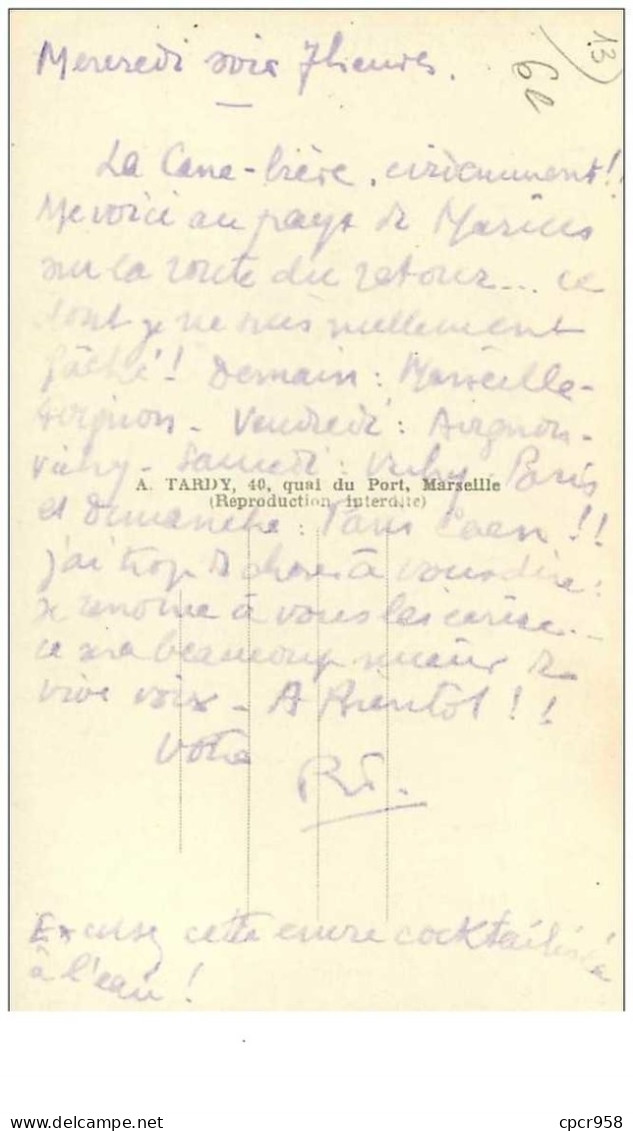 Mercredi soir 7 heures.
13
61
La Cane-bière, évidemment!!
Me voici au pays de Marius
sur la route du retour... ce
dont je ne suis nullement
fâché! Demain: Marseille-
Avignon - Vendredi: Avignon-
Vichy - Samedi: Vichy Paris
A. TARDY, 40, quai du Port, Marseille
(Reproduction interdite)
et dimanche: Paris Caen!!
j'ai trop de choses à vous dire:
je renonce à vous les écrire...
ce sera beaucoup mieux de
vive voix - A Bientôt!!
Votre
Excusez cette encre cocktailisée
à l'eau!
cpcr958